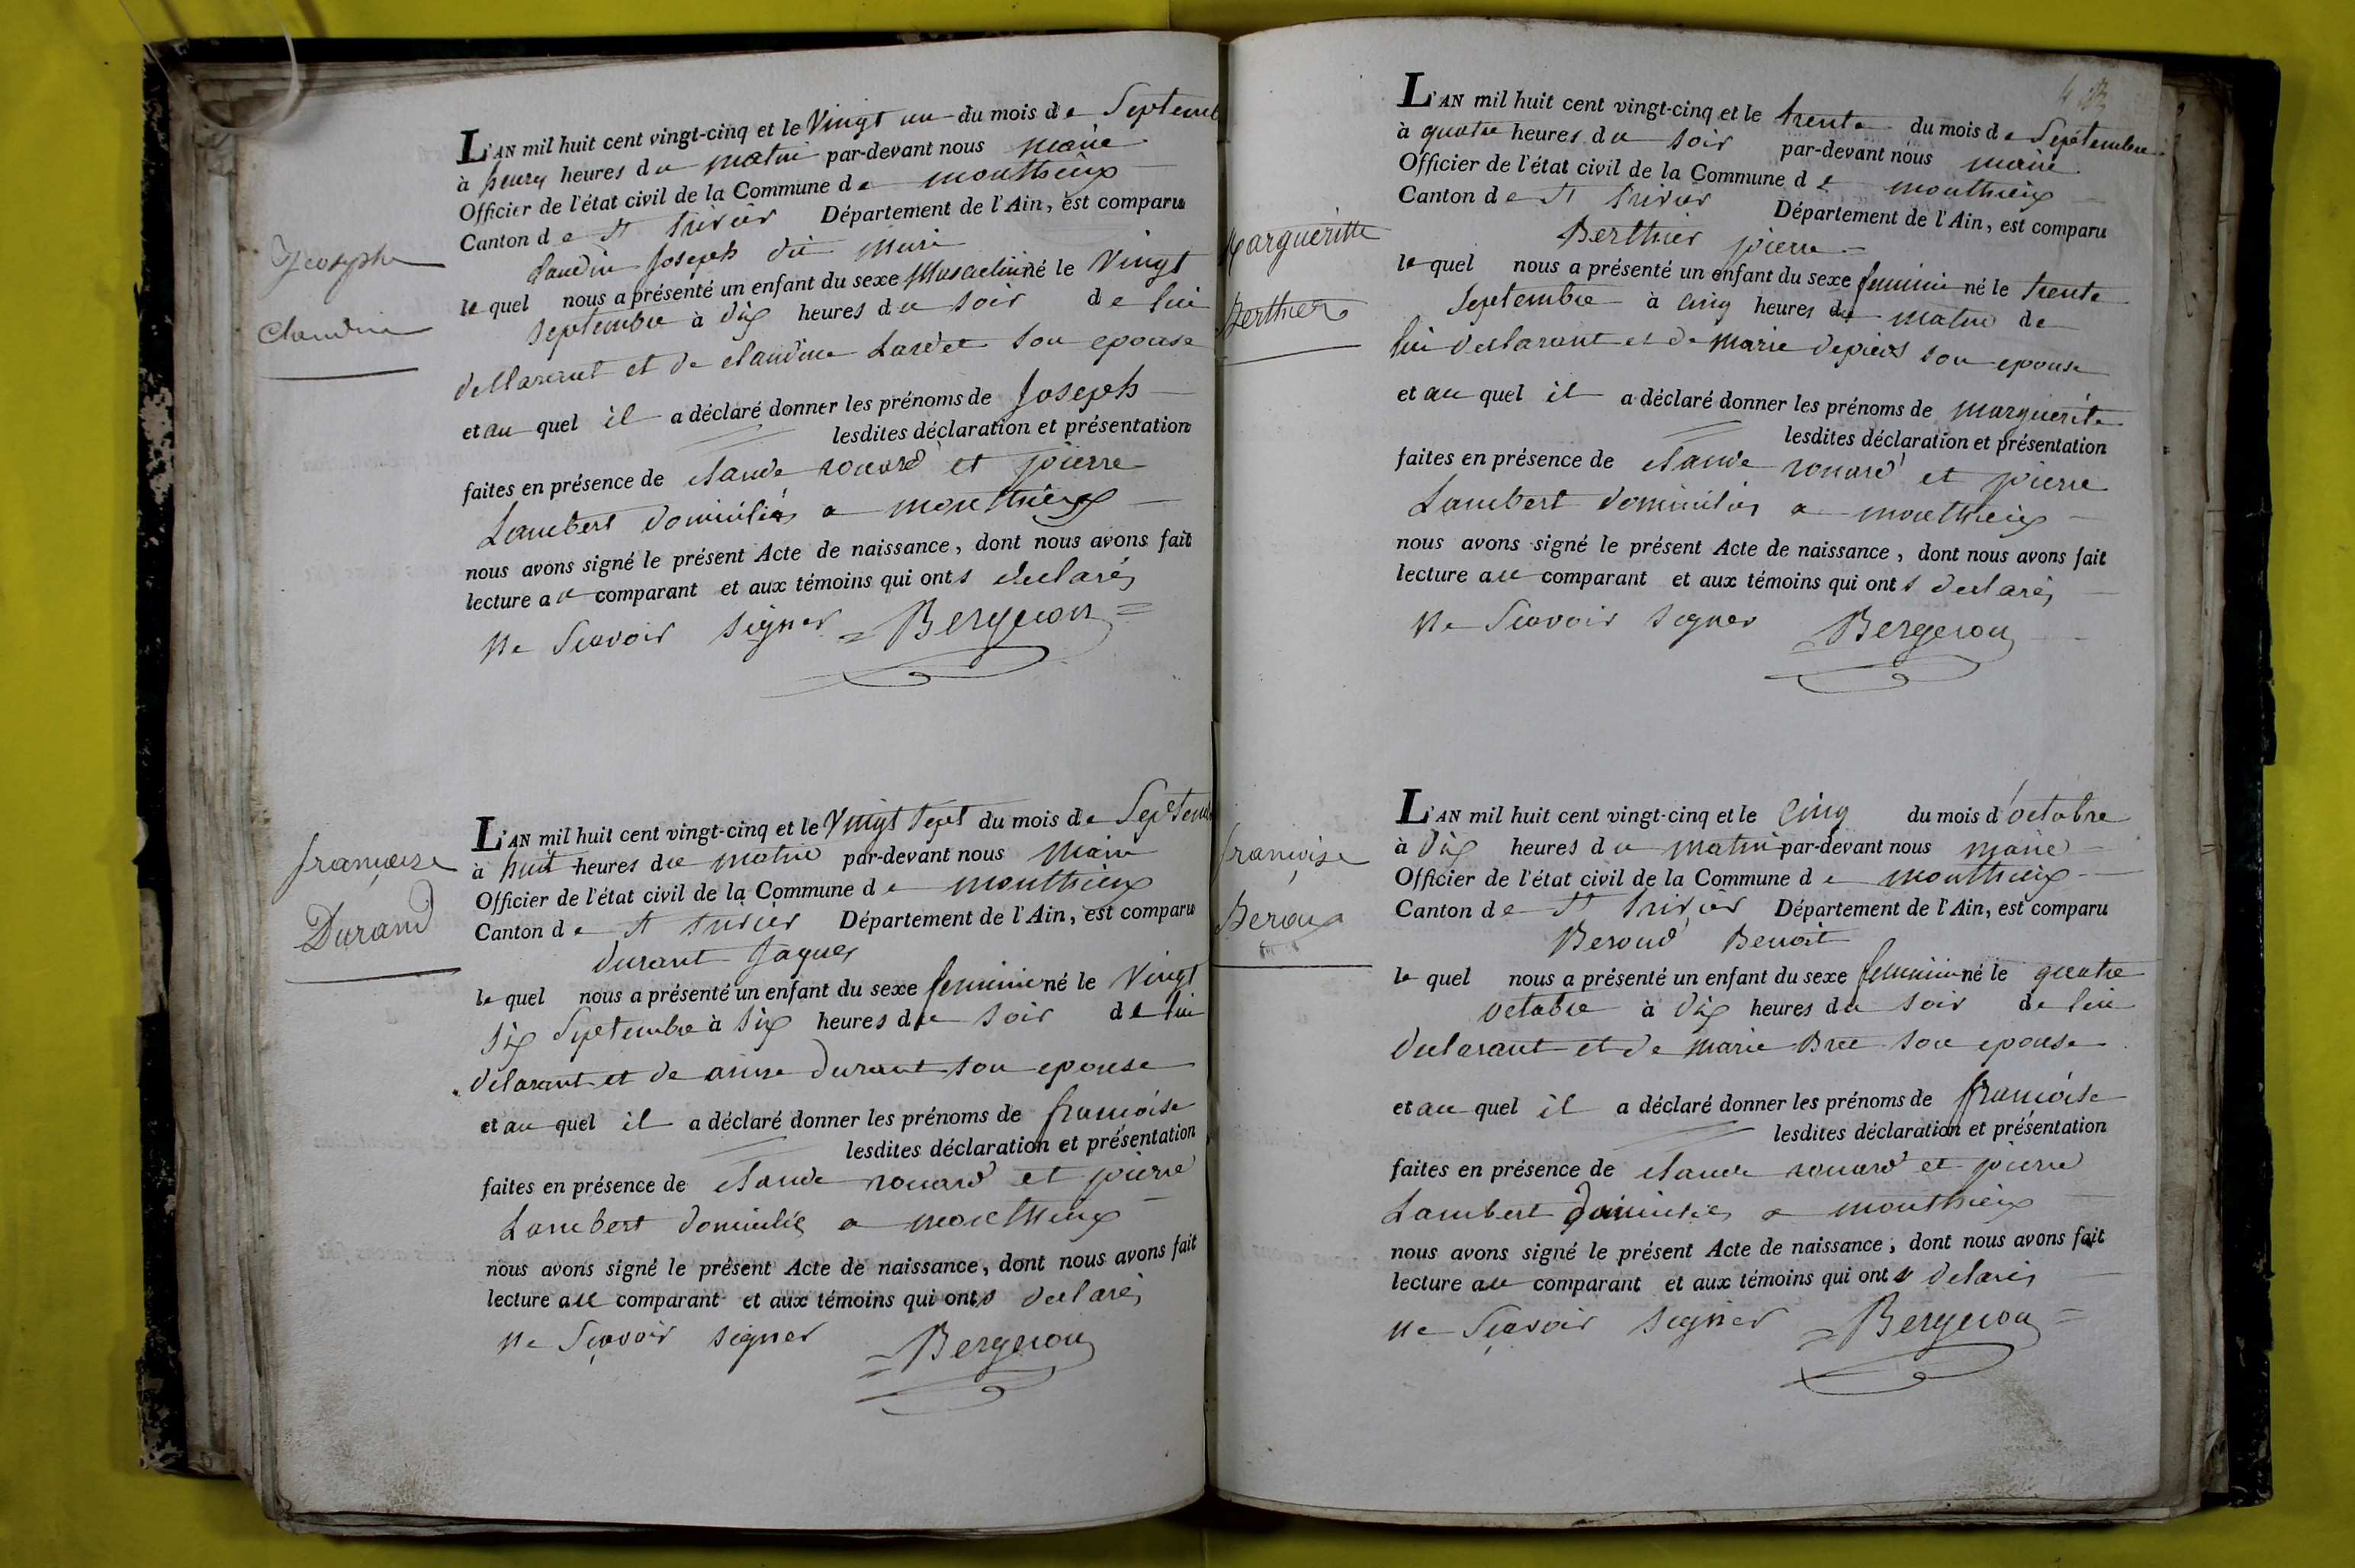 Joseph
Claudin
L'AN mil huit cent vingt-cinq et le Vingt un du mois de Septemb
à heures du matin par-devant nous maire
Officier de l'état civil de la Commune de monthieux
Canton de St trivier Département de l'Ain, est comparu
Joseph dit
le quel nous a présenté un enfant du sexe Masculin né le Vingt
septembre à dix heures du soir de lui
declarant et de claudine Lardet son epouse
et au quel il a déclaré donner les prénoms de Joseph
lesdites déclaration et présentation
faites en présence de claude rouard et pierre
Lambert domiciliés a monthieux
nous avons signé le présent Acte de naissance, dont nous avons fait
lecture au comparant et aux témoins qui onts declarés
Ne Scavoir signer Bergeron
francoise
Durand
L'AN mil huit cent vingt-cinq et le Vingt sept du mois de Septem
à huit heures du matin par-devant nous Maire
Officier de l'état civil de la Commune de monthieux
Canton de St trivier Département de l'Ain, est comparu
durant Jaques
le quel nous a présenté un enfant du sexe feminin né le Vingt
six Septembre à six heures du soir de lui
delarant et de anne durant son epouse
et au quel il a déclaré donner les prénoms de francoise
lesdites déclaration et présentation
faites en présence de claude rouard et pierre
Lambert domiciliés a monthieux
nous avons signé le présent Acte de naissance, dont nous avons fait
lecture au comparant et aux témoins qui onts declarés
Ne Sçavoir signer Bergeron
Margueritte
Berthier
L'AN mil huit cent vingt-cinq et le trente du mois de Septembre
à quatre heures du soir par-devant nous maire
Officier de l'état civil de la Commune de monthieux
Canton de St trivier Département de l'Ain, est comparu
Berthier pierre
le quel nous a présenté un enfant du sexe feminin né le trente
septembre à cinq heures du matin de
lui declarant et de marie depiers son epouse
et au quel il a déclaré donner les prénoms de marguerite
lesdites déclaration et présentation
faites en présence de claude rouard et pierre
Lambert domiciliés a monthieux
nous avons signé le présent Acte de naissance, dont nous avons fait
lecture au comparant et aux témoins qui onts declarés
Ne Scavoir signer Bergeron
francoise
Beroud
L'AN mil huit cent vingt-cinq et le cinq du mois d'octobre
à dix heures du matin par-devant nous maire
Officier de l'état civil de la Commune de monthieux
Canton de St trivier Département de l'Ain, est comparu
Beroud Benoit
le quel nous a présenté un enfant du sexe feminin né le quatre
octobre à dix heures du soir de lui
declarant et de marie Bree son epouse
et au quel il a déclaré donner les prénoms de francoise
lesdites déclaration et présentation
faites en présence de claude rouard et pierre
Lambert domiciliés a monthieux
nous avons signé le présent Acte de naissance, dont nous avons fait
lecture au comparant et aux témoins qui onts delarés
ne Sçavoir signer Bergeron